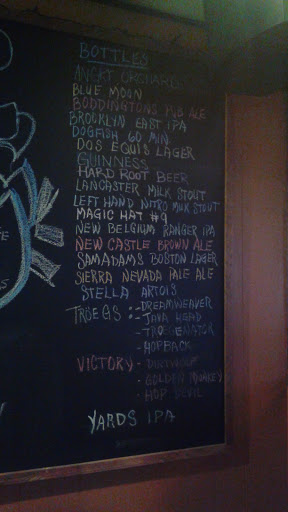 BOTTLES
ANGRY ORCHARD
BLUE MOON
BODDINGTONS PUB ALE
BROOKLYN EAST IPA
DOGFISH 60 MIN.
DOS EQUIS LAGER
GUINNESS
HARD ROOT BEER
LANCASTER MILK STOUT
LEFT HAND NITRO MILK STOUT
MAGIC HAT #9
NEW BELGIUM RANGER IPA
NEW CASTLE BROWN ALE
SAM ADAMS BOSTON LAGER
SIERRA NEVADA PALE ALE
STELLA ARTOIS
TRÖEGS :- DREAMWEAVER
- JAVA HEAD
- TROEGENATOR
- HOPBACK
VICTORY - DIRTWOLF
- GOLDEN MONKEY
- HOP DEVIL
YARDS IPA